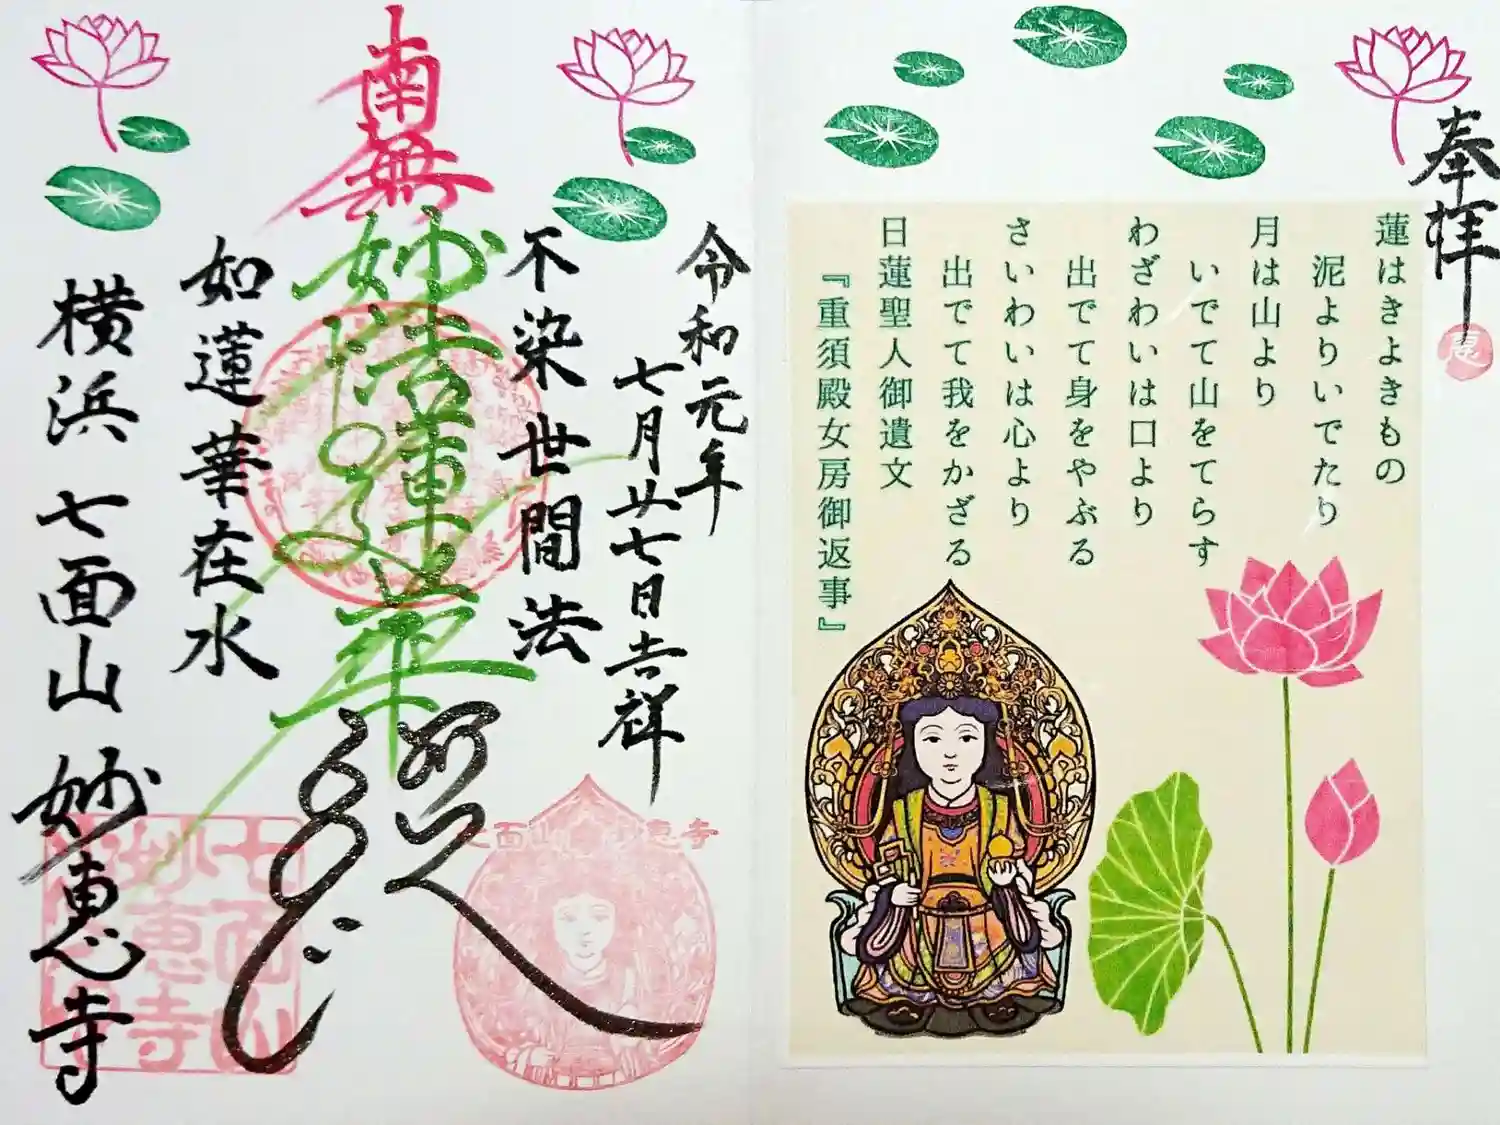 奉拝
恵
蓮はきよきもの
泥よりいでたり
月は山より
いでて山をてらす
わざわいは口より
出でて身をやぶる
さいわいは心より
出でて我をかざる
日蓮聖人御遺文
『重須殿女房御返事』
令和元年
七月廿七日吉祥
不染世間法
南無妙法蓮華経
如蓮華在水
横浜 七面山 妙恵寺
七面山妙恵寺
七面山
妙恵寺